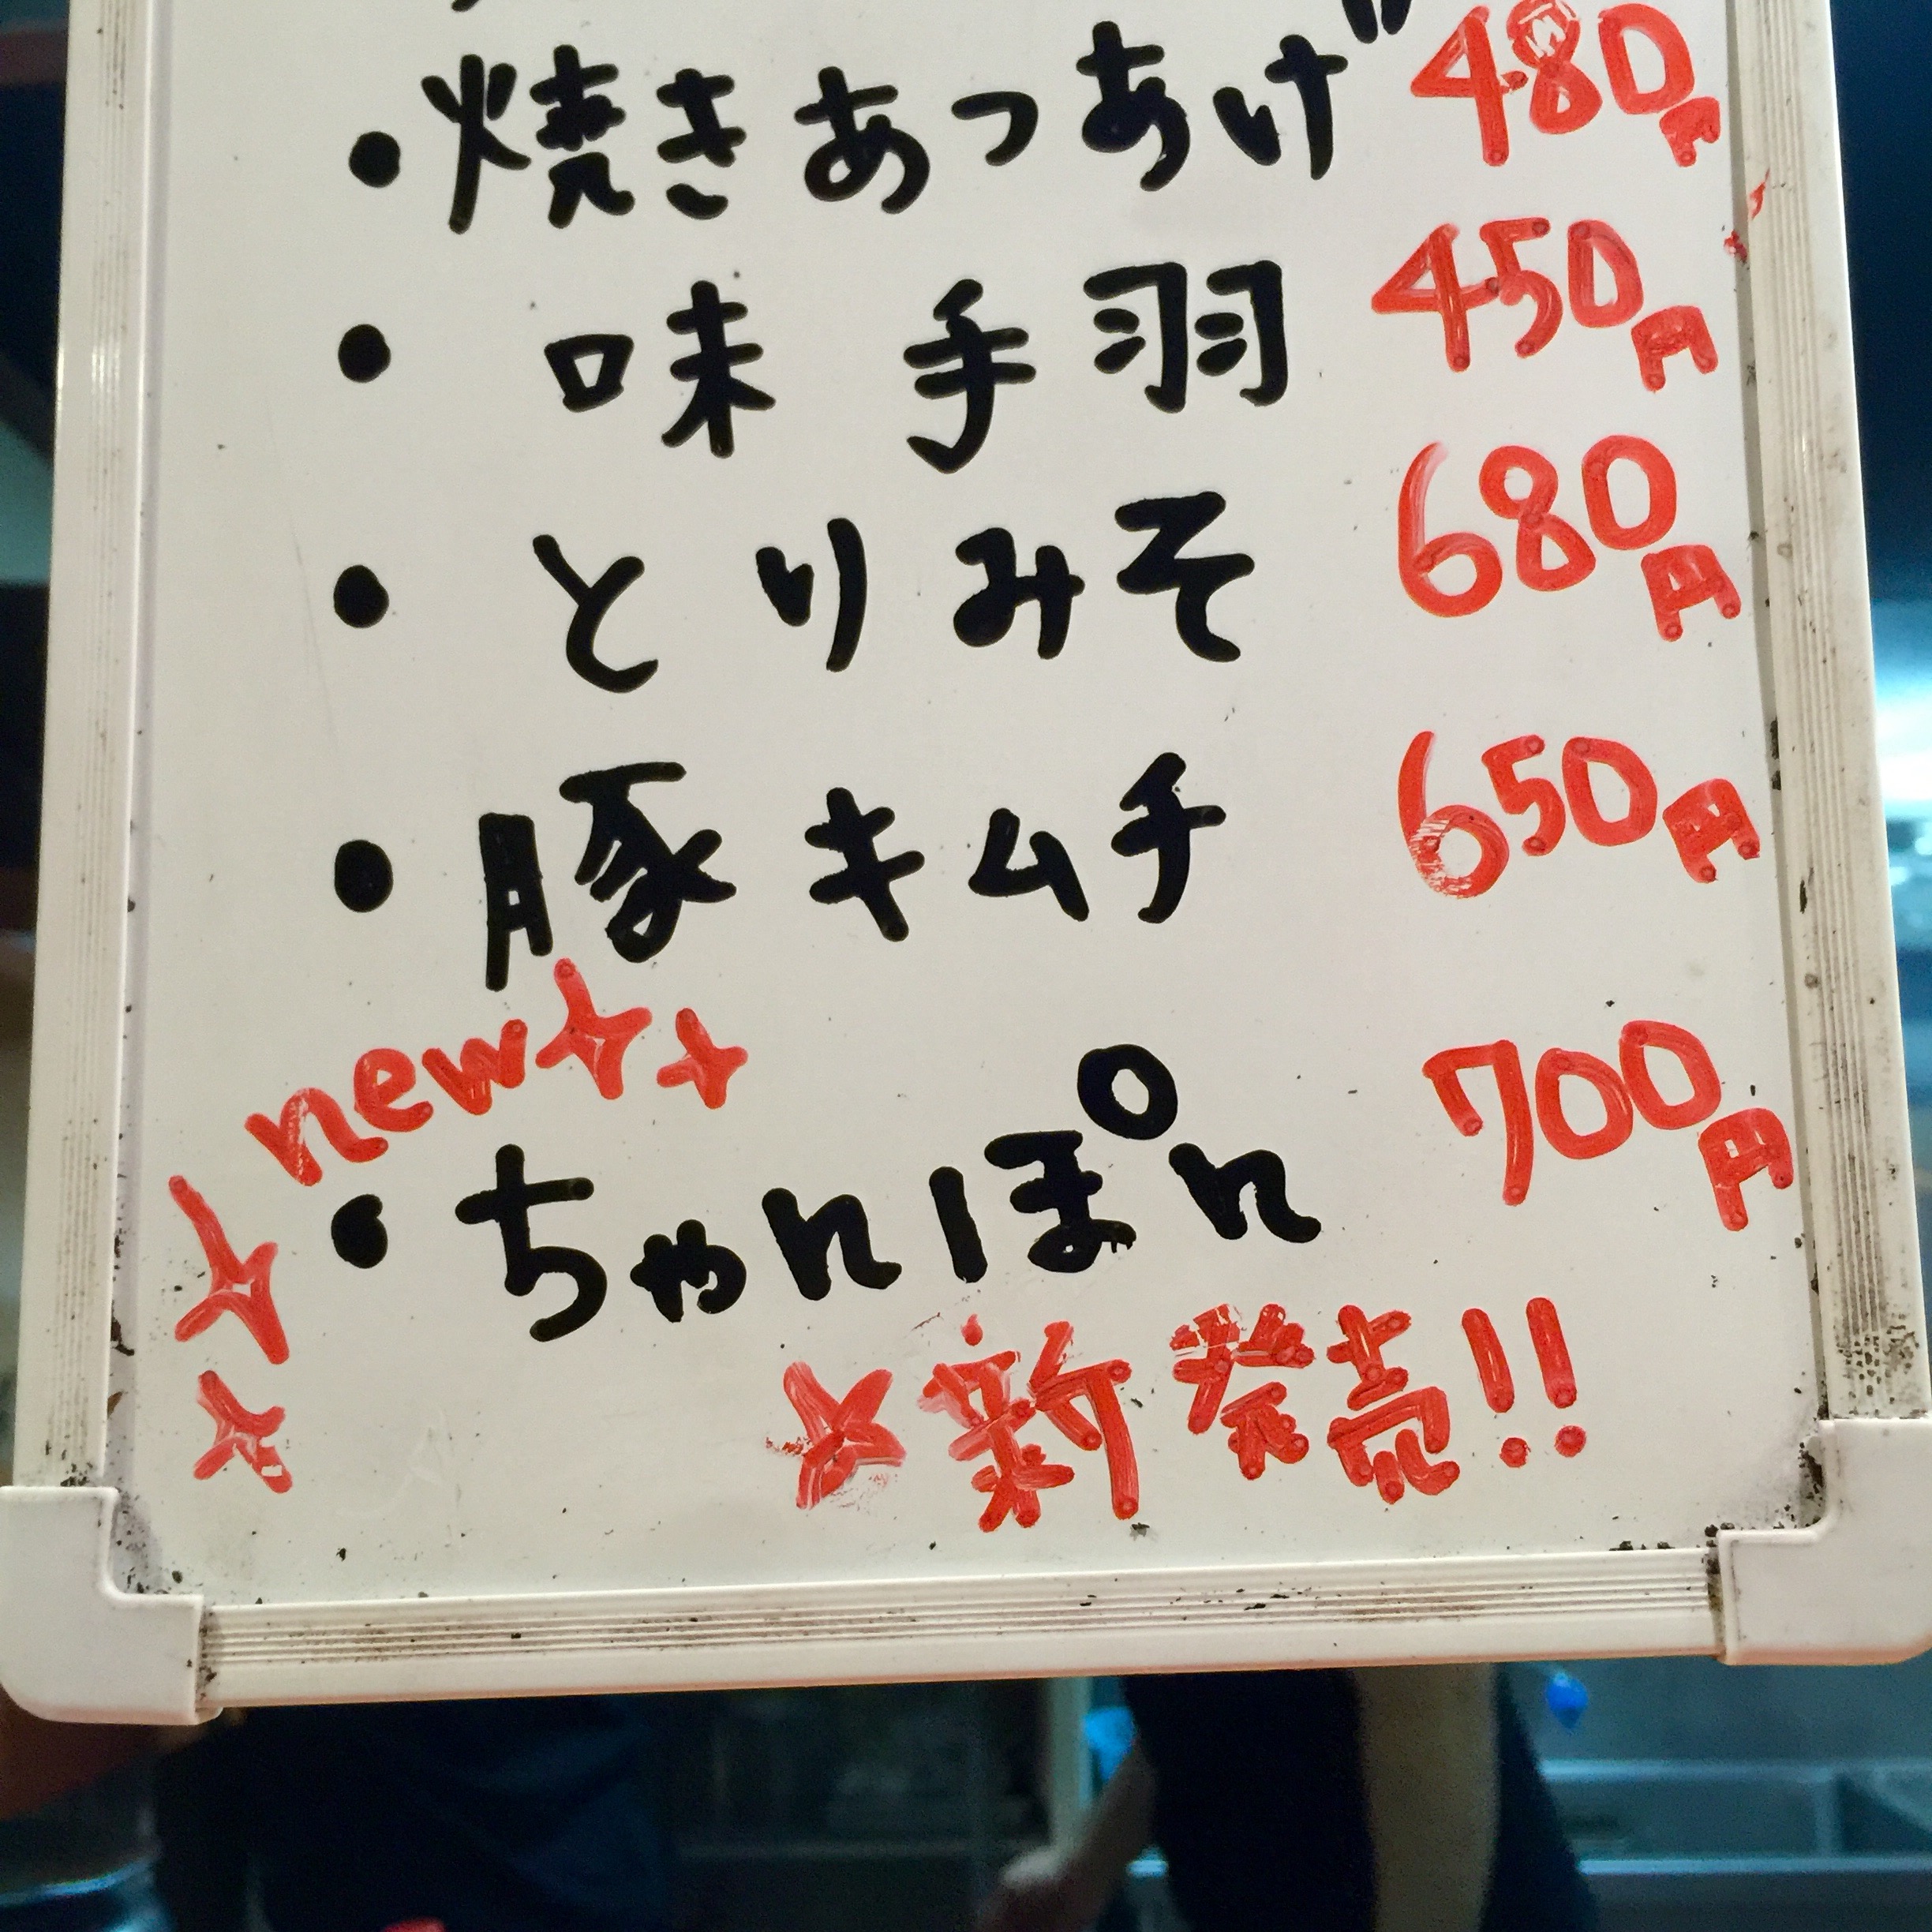 ・焼きあつあげ 480円
・味手羽 450円
・とりみそ 680円
・豚キムチ 650円
new
・ちゃんぽん 700円
新発売!!